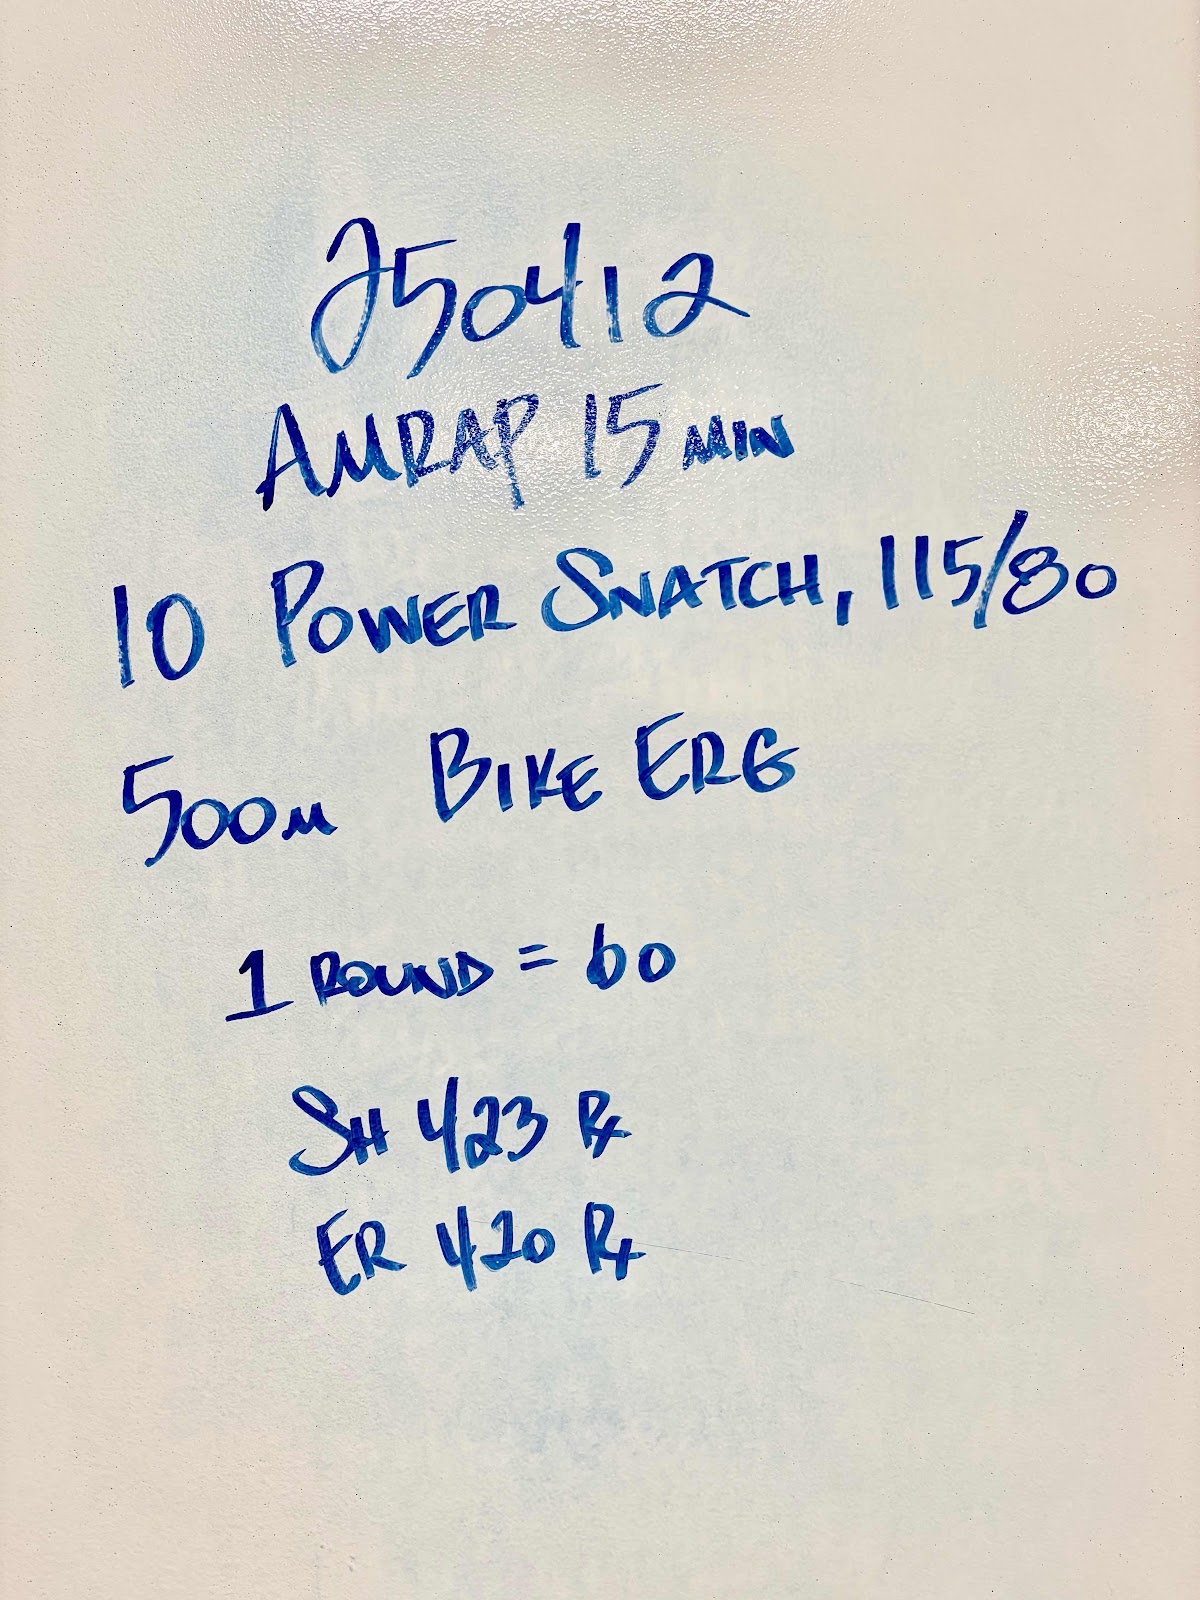 250412
AMRAP 15 MIN
10 POWER SNATCH, 115/80
500M BIKE ERG
1 ROUND = 60
SH 423 Rx
ER 420 Rx